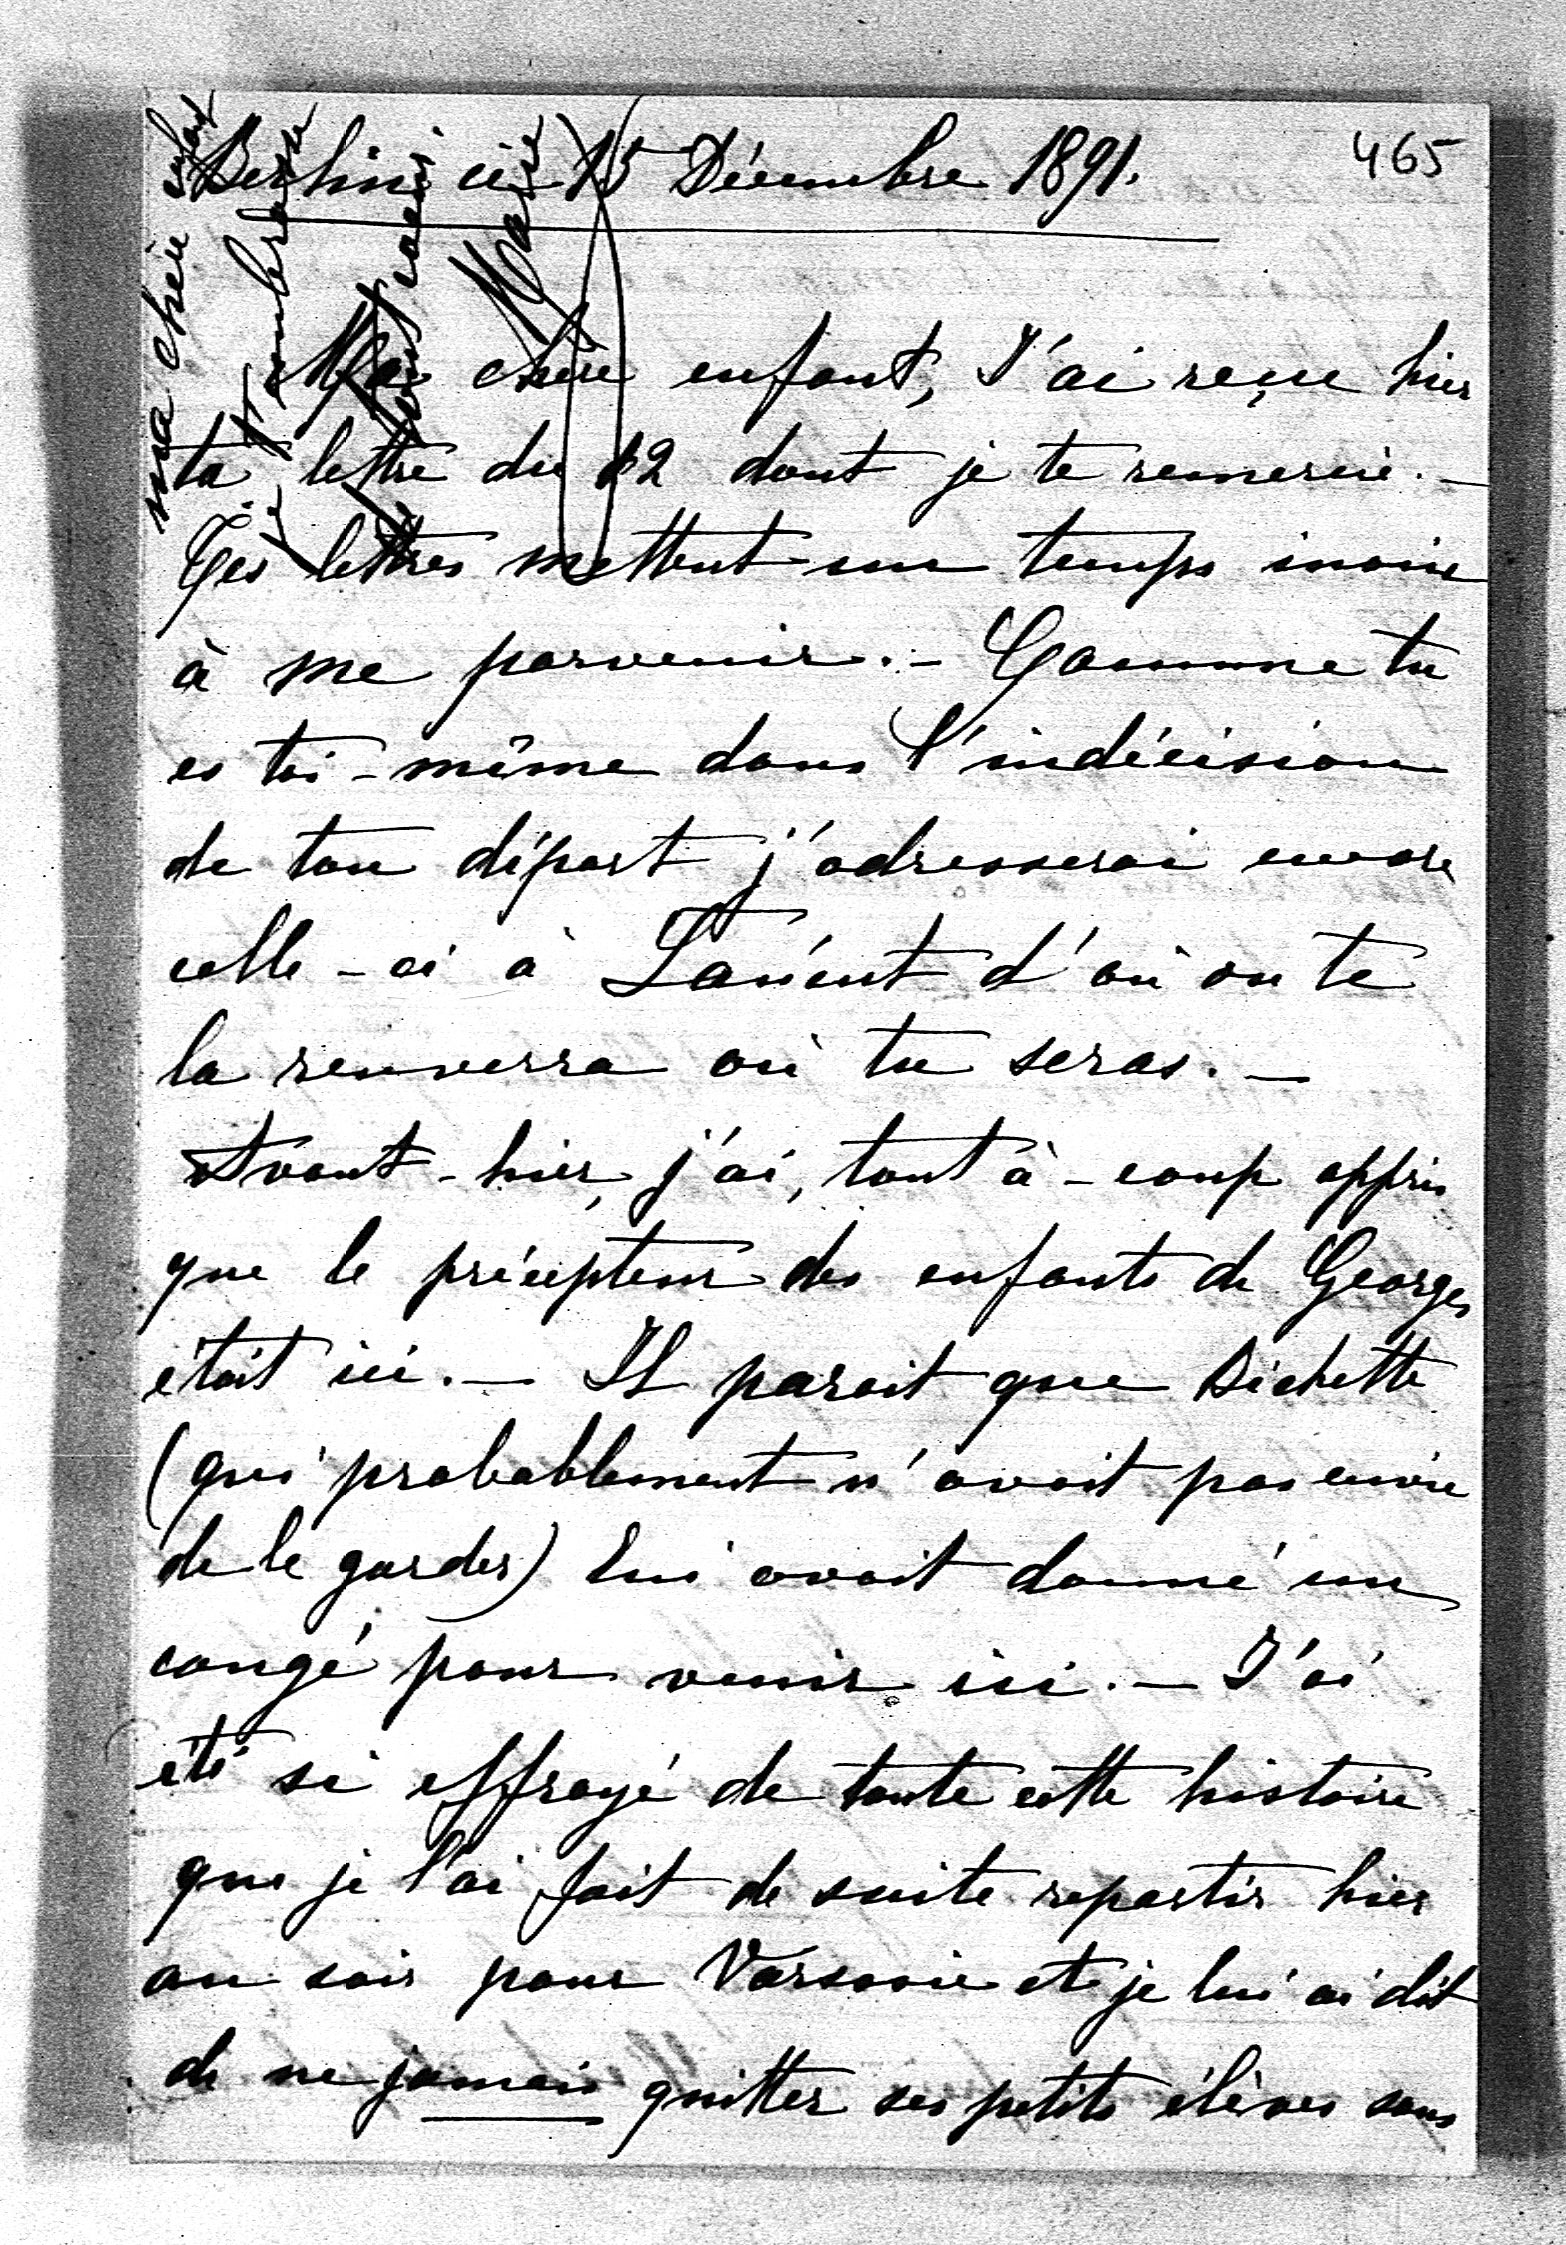 465
Berlin ce 15 Décembre 1891.
Ma chère enfant, J'ai reçu hier
ta lettre du 12 dont je te remercie. —
Tes lettres mettent un temps inoui
à me parvenir. — Comme tu
es toi-même dans l'indécision
de ton départ j'adresserai encore
celle-ci à Lancut d'où on te
la renverra où tu seras. —
Avant-hier, j'ai, tout à-coup appris
que le précepteur des enfants de Georges
était ici. — Il parait que Bichette
(qui probablement n'avait pas envie
de le garder) lui avait donné un
congé pour venir ici. — J'ai
été si effrayé de toute cette histoire
que je l'ai fait de suite repartir hier
au soir pour Varsovie et je lui ai dit
de ne jamais quitter ses petits élèves sans
ma chère enfant
je t'embrasse
Marie